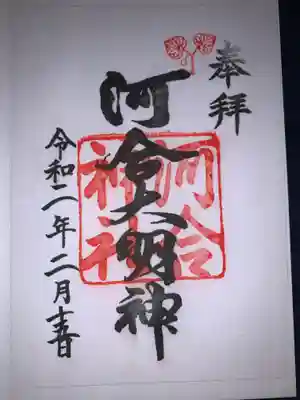 奉拝
河合大明神
河合
神社
令和二年二月日